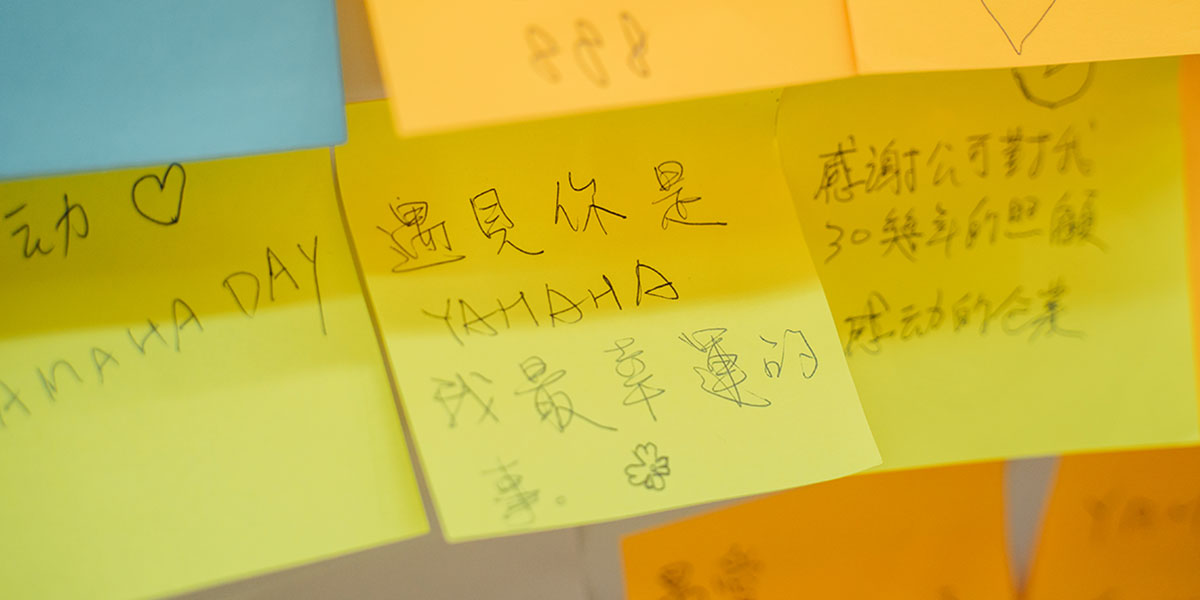 888
动
AMAHA DAY
遇見你是
YAMAHA
我最幸運的
事。
感謝公司對我
30幾年的照顧
感动的企業